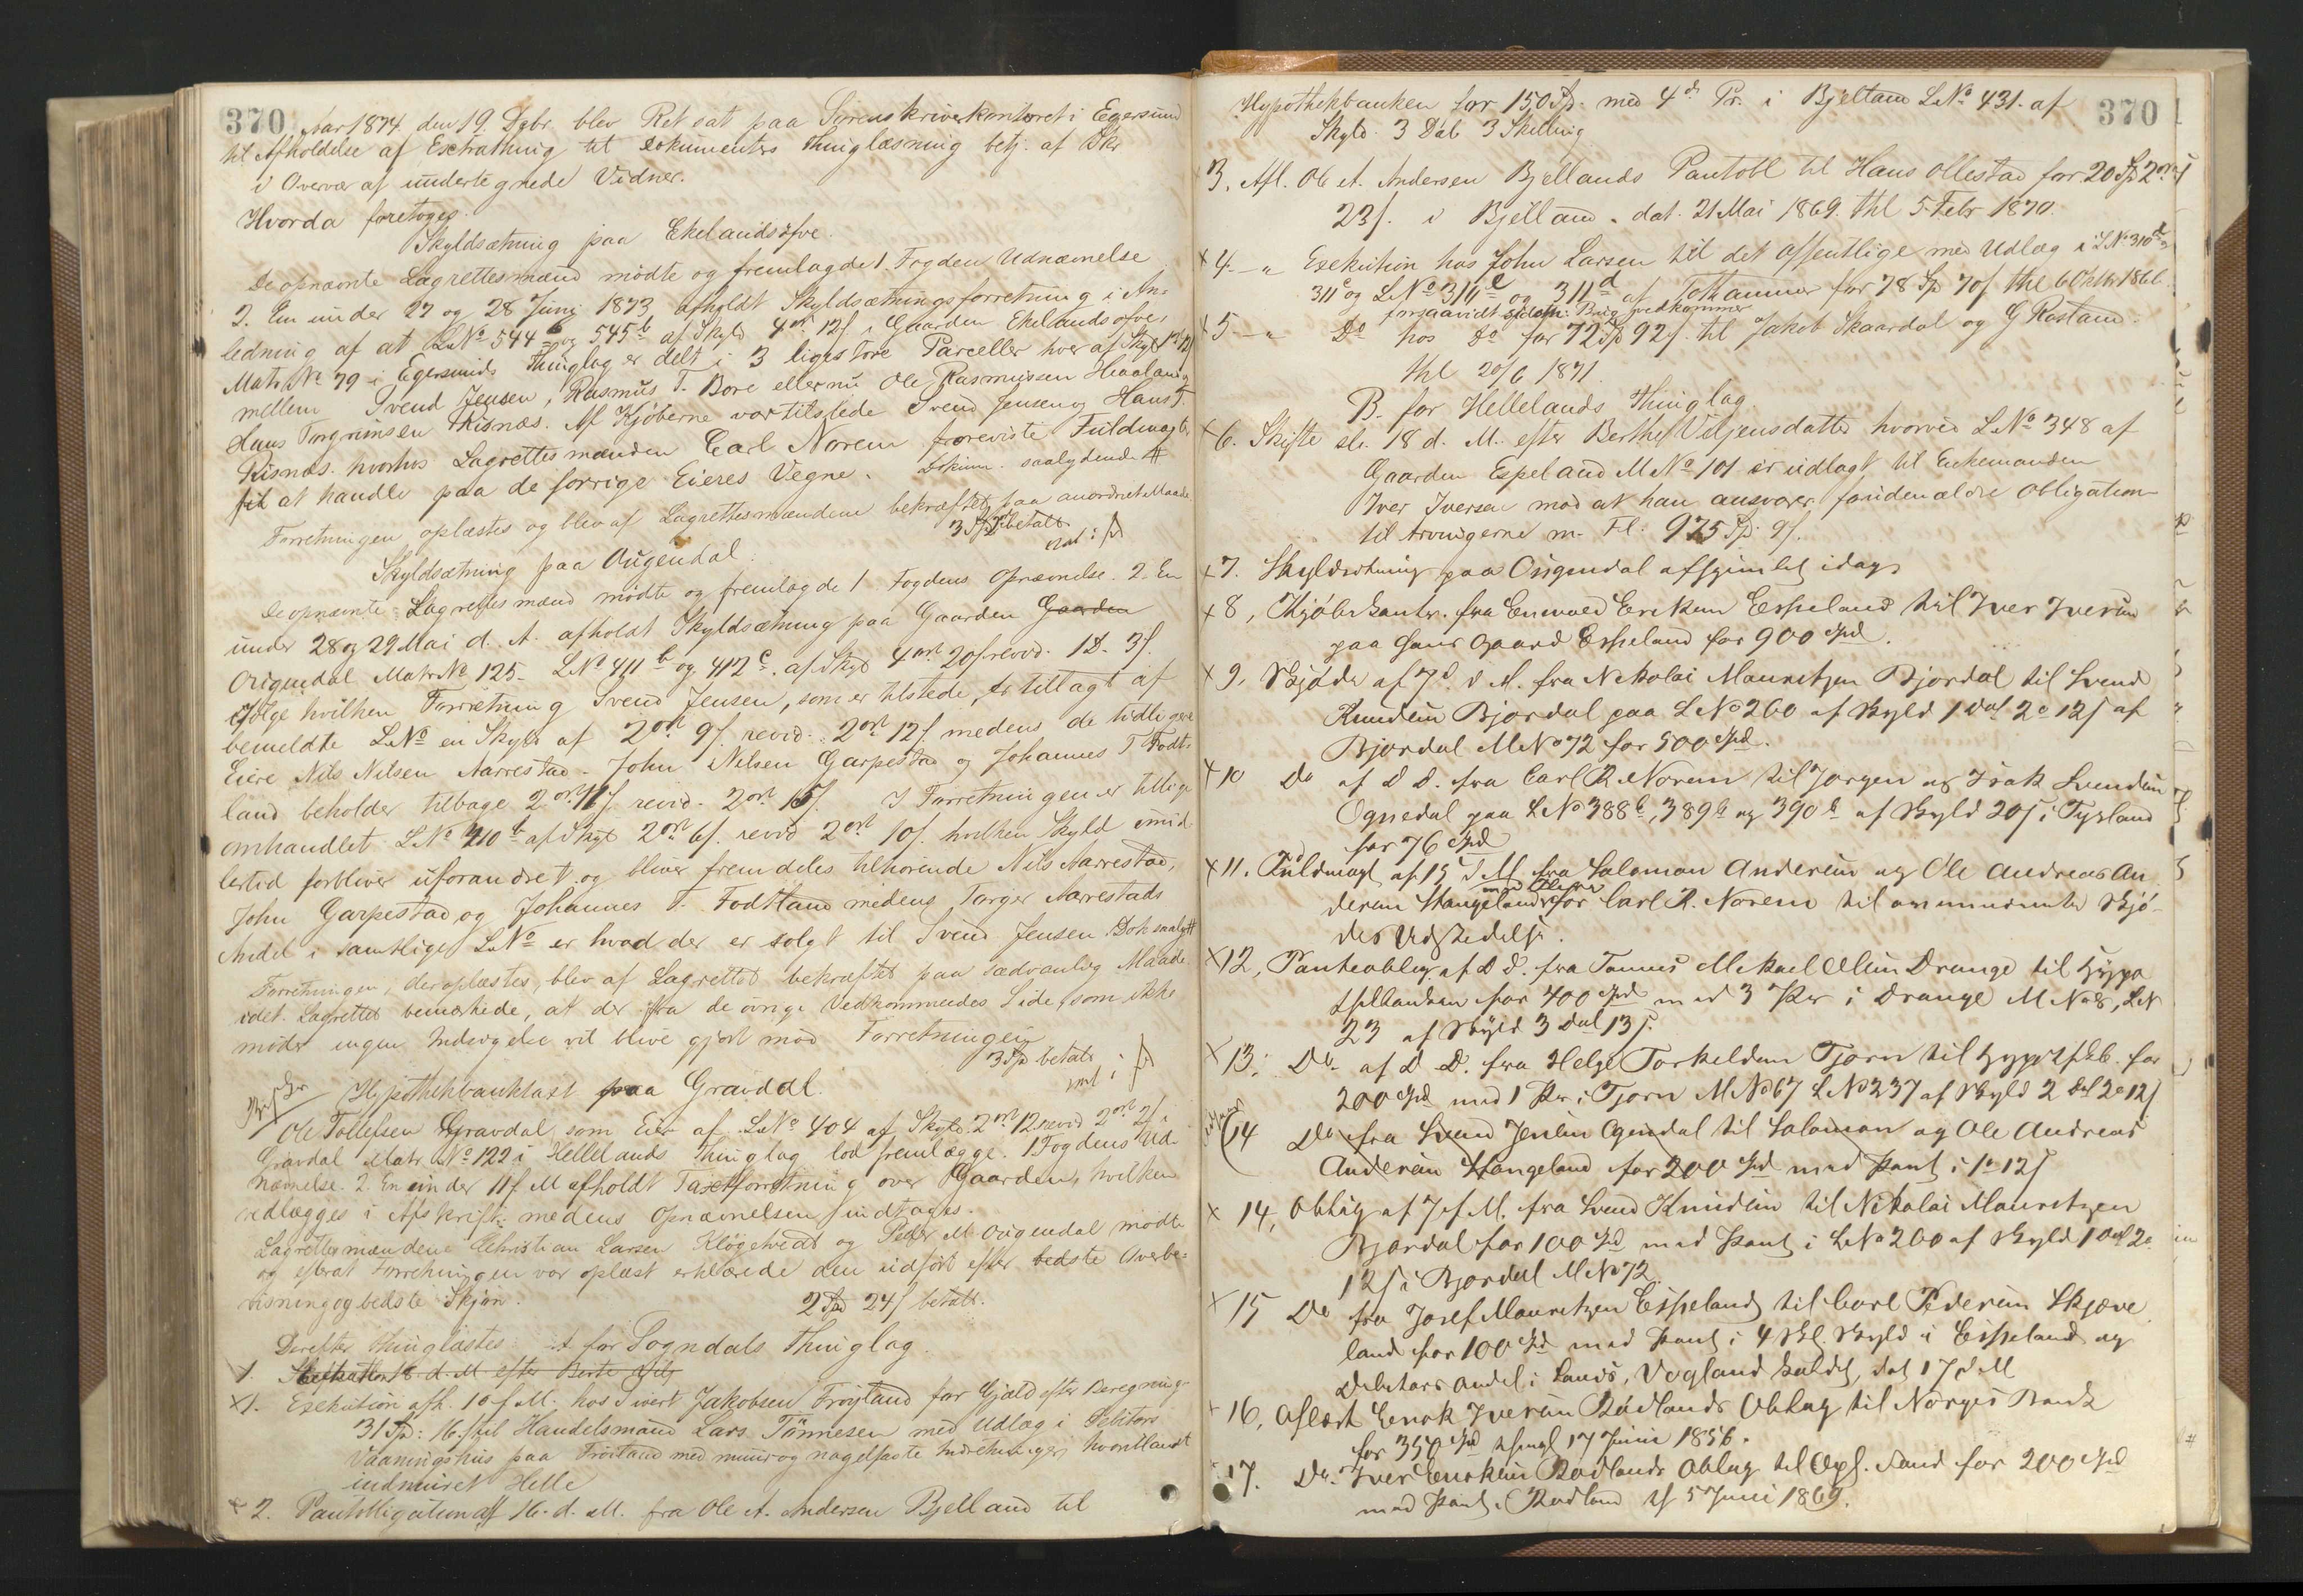 370
Aar 1874 den 19 Dsbr. blev Ret sat paa Sorenskriverkontoret i Egersund
til Afholdelse af Extrathing til Dokumenters Thinglæsning betj. af Skr
i Overvær af undertegnede Vidner.
Hvorda foretoges.
Skyldsætning paa Ekelandsofve.
De opnævnte Lagrettesmænd mødte og fremlagde 1. Fogdens Udnævnelse
2. En under 27 og 28 Juni 1873 afholdt Skyldsætningsforretning i An-
ledning af at LNo 544 b og 545 b af Skyld 4 ort 12 s i Gaarden Ekelandsofve,
Matr No 79 i Egersunds Thinglag er delt i 3 ligestore Parceller hver af Skyld 1 ort 12 s
mellem Svend Jensen, Rasmus T. Bore eller nu Ole Rasmussen Haaland og
Hans Torgrimsen Risnæs. Af Kjøberne var tilstede Svend Jensen og Hans T.
Risnæs. hvorhos Lagrettesmanden Carl Norem foreviste Fuldmagt
til at handle paa de forrige Eieres Vegne. Dokum. saalydende #
Forretningen oplæstes og blev af Lagrettesmændene bekræftet paa anordnet Maade.
3 Spd betalt
Skyldsætning paa Ougendal.
De opnævnte Lagrettesmænd mødte og fremlagde 1 Fogdens Opnævnelse. 2. En
under 28 og 29 Mai d. A. afholdt Skyldsætning paa Gaarden Gaarden
Origendal Matr No 125. LNo 411 b og 412 c. af Skyld 4 ort 20 s revid. 1 D. 3 s.
ifølge hvilken Forretning Svend Jensen, som er tilstede, er tillagt af
bemeldte LNo en Skyld af 2 ort 9 s revid. 2 ort 12 s medens de tidligere
Eiere Nils Nilsen Aarrestad. John Nilsen Garpestad og Johannes T Fodt-
land beholder tilbage 2 ort 11 s. revid. 2 ort 15 s. I Forretningen er tillige
omhandlet LNo 410 b af Skyld 2 ort 6 s. revid 2 ort 10 s. hvilken Skyld imid-
lertid forbliver uforandret og bliver fremdeles tilhørende Nils Aarrestad,
John Garpestad og Johannes T. Fodtland medens Torger Aarrestads
Andel i samtlige LNo er hvad der er solgt til Svend Jensen. Dok saalyd #
Forretningen, der oplæstes, blev af Lagrettet bekræftet paa sædvanlig Maade
idet Lagrettet bemærkede, at der fra de øvrige Vedkommendes Side, som ikke
møder ingen Indsigelse vil blive gjort mod Forretningen
3 Sp betalt
Hypothekbanktaxt paa Gravdal.
Ole Tollefsen Gravdal som Eier af LNo 404 af Skyld 2 ort 12 revid 2 ort 21 i
Gravdal Matr. No 122 i Hellelands Thinglag lod fremlægge. 1 Fogdens Ud-
nævnelse. 2. En under 11 f. M afholdt Taxtforretning over Gaarden, hvilken
vedlægges i Afskrift medens Opnævnelsen indtages.
Lagrettesmændene Christian Larsen Kløgetvedt og Peder M Origendal mødte
og efterat Forretningen var oplæst erklærede den udført efter bedste Overbe-
visning og bedste Skjøn.
2 Spd 24 s betalt.
Derefter thinglæstes A for Sogndals Thinglag.
1. Skifte slr. 18 d. M efter Berte Vilj
X1. Exekution afh. 10 f. M. hos Sivert Jakobsen Frøyland for Gjæld efter Beregning
31 Sp: 16. s til Handelsmand Lars Tønnesen med Udlæg i Debitors
Vaaningshus paa Frøiland med muur og nagelfaste Indretninger, hvoriblandt
indmuret Helle
x 2. Pantobligation af 16. d. M. fra Ole A. Andersen Bjelland til
370
Hypothekbanken for 150 Sp. med 4de Pr. i Bjelland LNo 431. af
Skyld 3 Dal 3 Skilling
3. Afl. Ole A. Andersen Bjellands Pantobl til Hans Ollestad for 20 Sp 2 ort
23 s. i Bjelland. dat. 21 Mai 1869. thl 5 Febr 1870.
x 4 — " Exekution hos John Larsen til det offentlige med Udlæg i LNo 310 d og
311 c og LNo 311 c og 311 d af Tothammer for 78 Sp 70 s thl 6 Oktbr 1866
forsaavidt Brug vedkommer
x 5 — " Do hos Do for 72 Sp 92 s. til Jakob Skaardal og G Rostand.
thl 20/6 1871.
B. for Hellelands Thinglag
x 6. Skifte slr. 18 d. M. efter Berthe Viljensdatter hvorved LNo 348 af
Gaarden Espeland MNo 101 er udlagt til Enkemanden
Iver Iversen mod at han ansvarer foruden ældre Obligation
til Arvingerne m. Fl. 975 Sp. 9 s.
x 7. Skyldsætning paa Origendal afhjemlet idag
x 8, Kjøbekontr. fra Enevald Eriksen Espeland til Iver Iversen
paa hans Gaard Espeland for 900 Spd.
x 9, Skjøde af 7 d. M. fra Nikolai Mauritzen Bjordal til Svend
Knudsen Bjordal paa LNo 260 af Skyld 1 Dal 2 o 12 s af
Bjordal MNo 72 for 500 Spd.
x 10 Do af D D. fra Carl R Norem til Jørgen og Isak Svendsen
Ognedal paa LNo 388 b, 389 b og 390 b af Skyld 20 s i Tysland
for 76 Spd
x 11. Fuldmagt af 15 d M. fra Salomon Andersen og Ole Andreas An
dersen Stangeland med Flere for Carl R. Norem til ommeldte Skjø-
des Udstedelse.
x 12, Panteoblig. af D D. fra Tønnes Mikael Olsen Drange til Hypo
thekbanken for 400 Spd med 3 Pr i Drange MNo 8, LN
23 af Skyld 3 Dal 13 s.
x 13. Do. af D D. fra Helge Torkeldsen Tjørn til Hypothkb. for
200 Spd med 1 Pr. i Tjørn MNo 67 LNo 237 af Skyld 2 Dal 2 o 12 s
(14 Do fra Svend Jensen Ogendal til Salomon og Ole Andreas
Andersen Stangeland for 200 Spd med Pant i 1 o 12 s
x 14, Oblig af 7 f. M. fra Svend Knudsen til Nikolai Mauritzen
Bjordal for 100 Spd med Pant i LNo 260 af Skyld 1 Dal 2 o
12 s i Bjordal MNo 72.
x 15 Do fra Josef Mauritzen Espeland til Carl Pedersen Skjæve
land for 100 Spd med Pant i 4 Skl. Skyld i Espeland og
Debitors Andel i Lands, Vogland kaldet, dat 17 d M
16, Aflæst Enok Iversen Rødlands Oblag til Norges Bank
for 350 Spd thingl 17 Juni 1856.
17. Do. Iver Enoksen Rødlands Oblag til Opl. Fond for 200 Spd
med Pant i Rødland tl 5 Juni 1869.